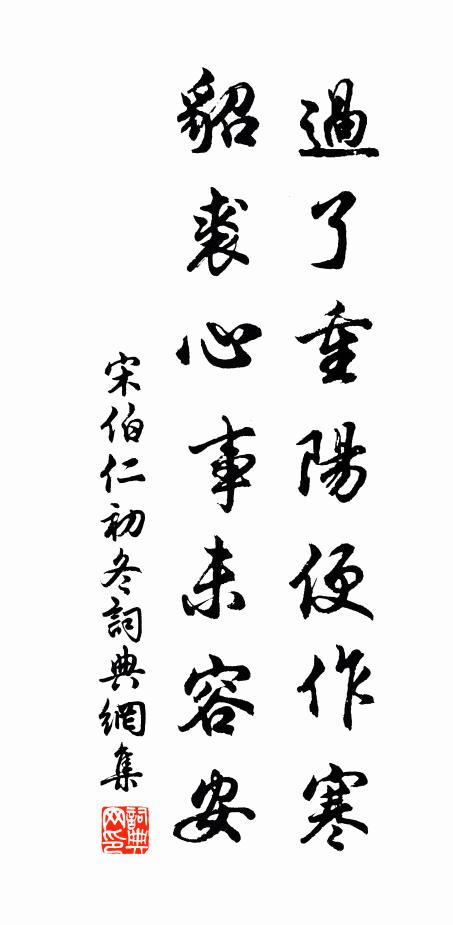 過了重陽便作寒
貂裘心事未容安
宋伯仁初冬詞典網集
詞典网印